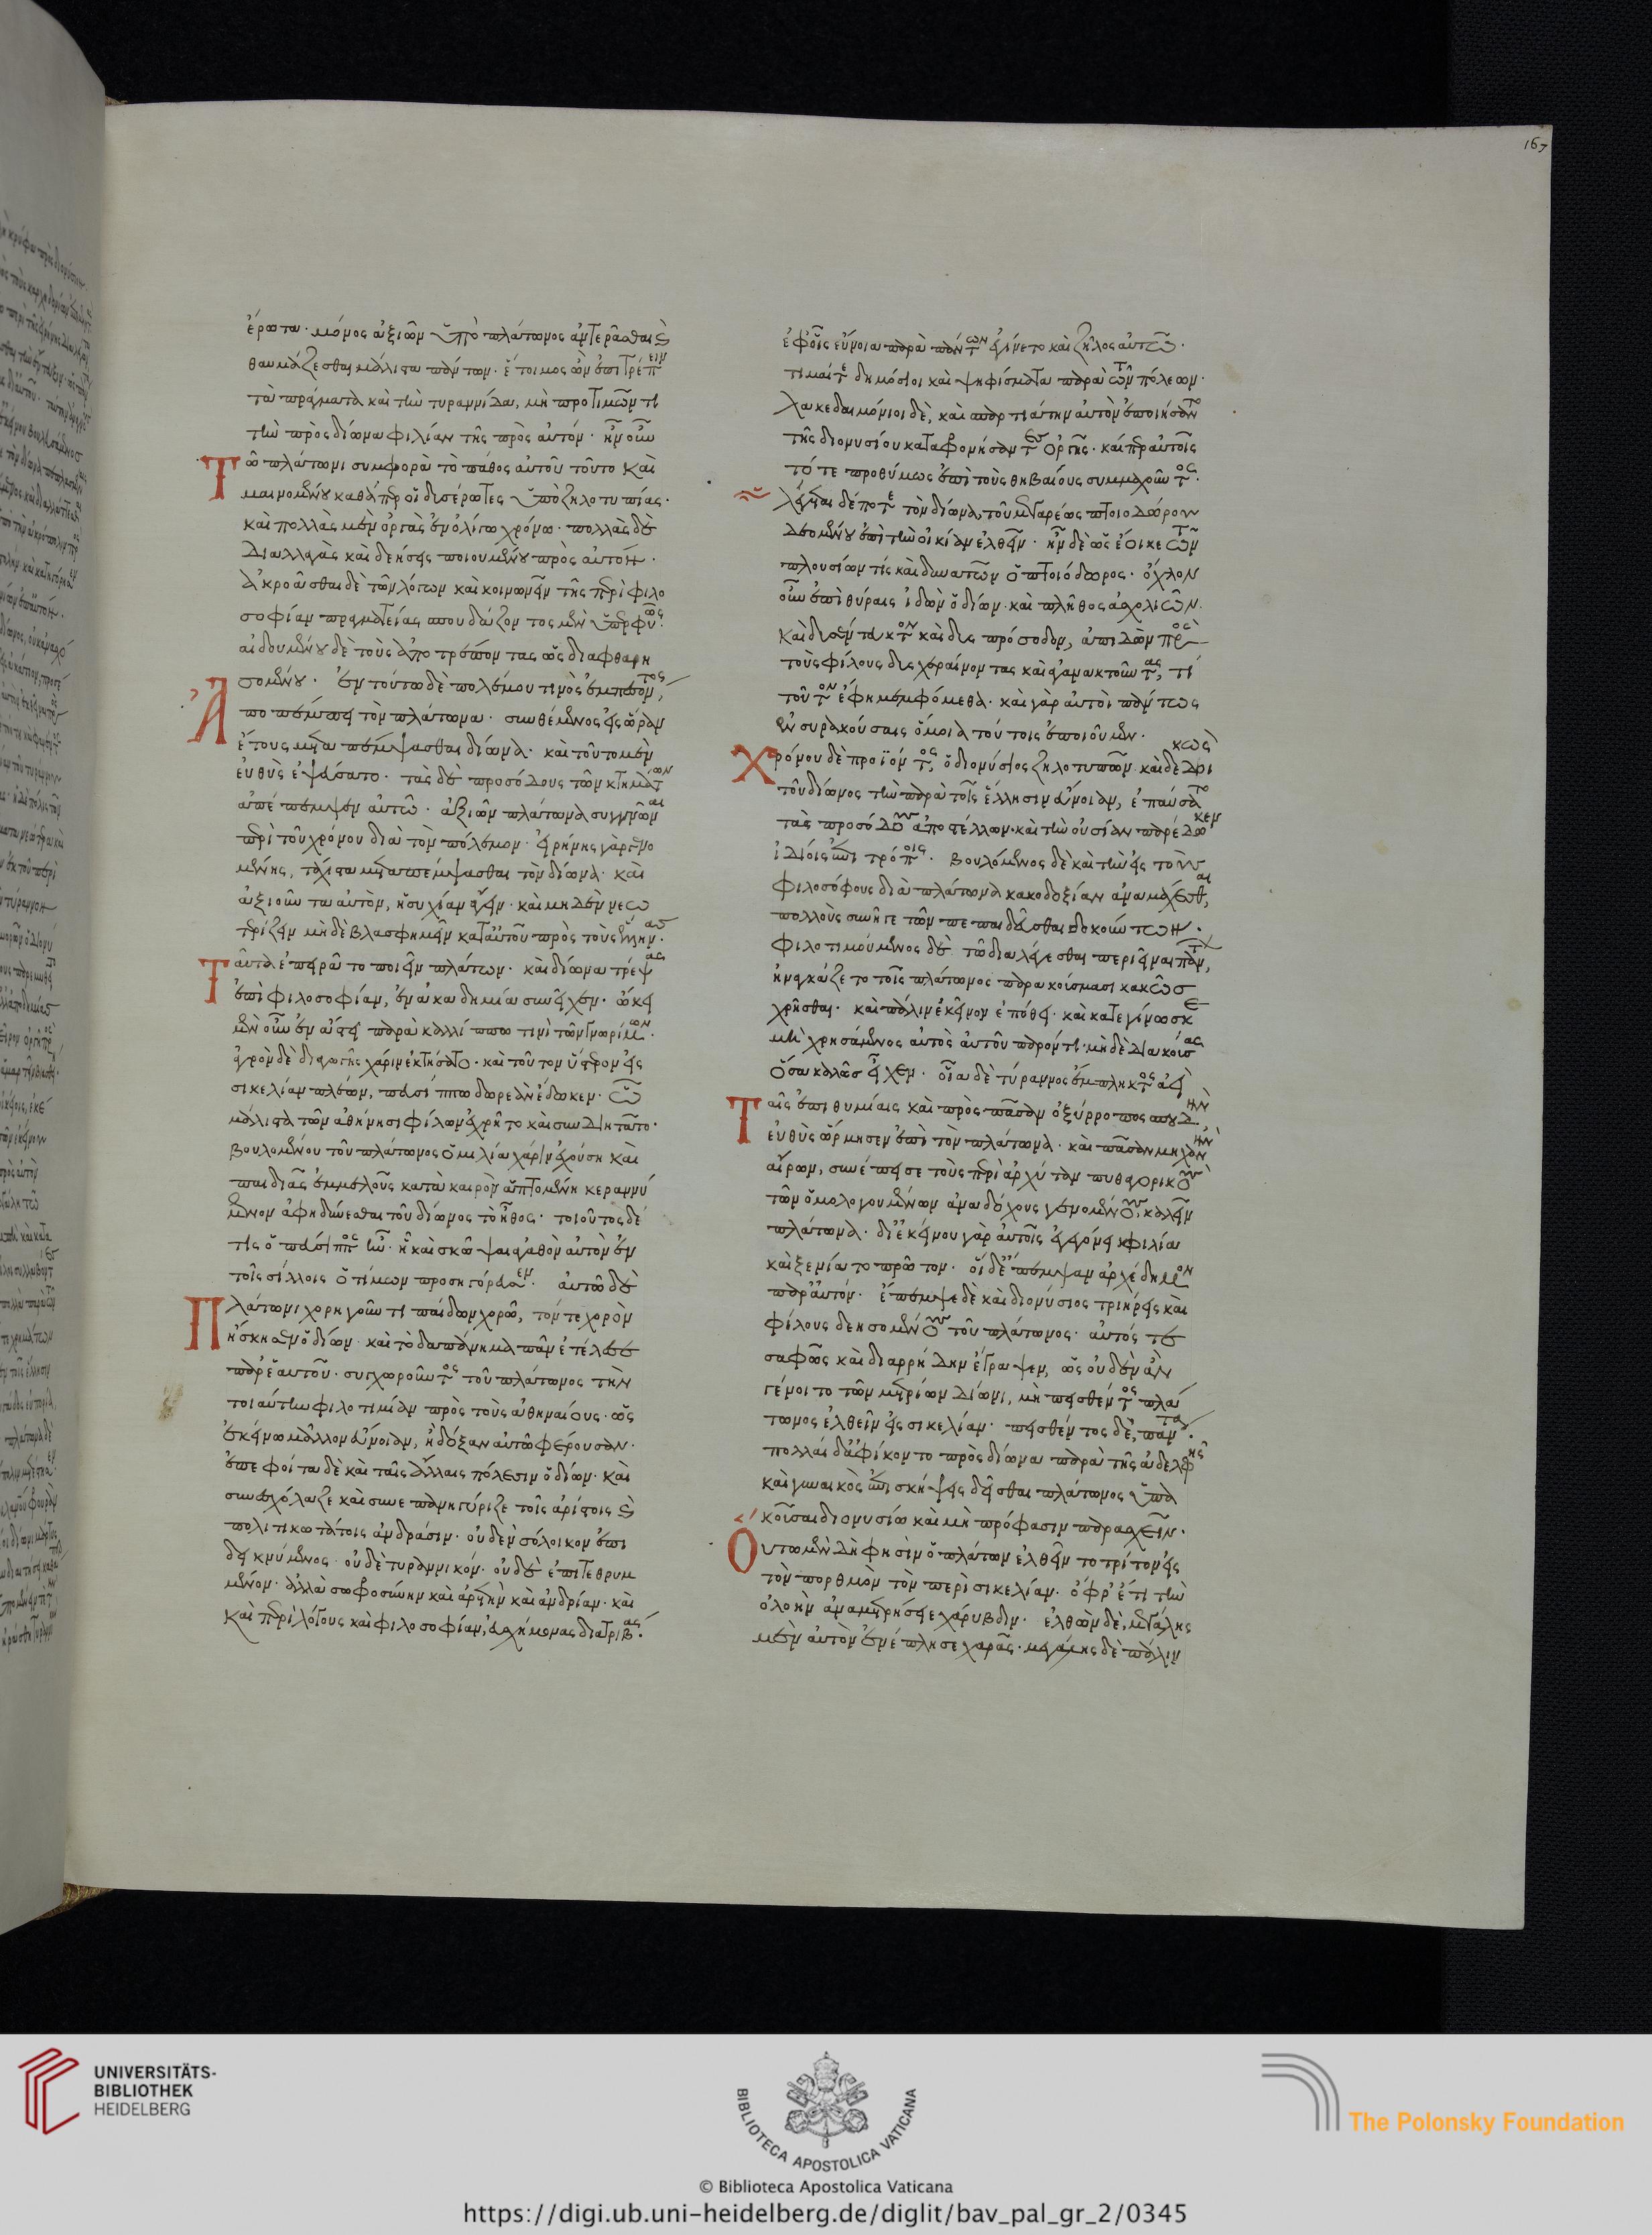 ἔρωτα· μόνος ἀξιῶν ὑπὸ πλάτωνος ἀντερᾶσθαι καὶ
θαυμάζεσθαι μάλιστα πάντων· ἕτοιμος ὢν ἐπιτρέπειν
τὰ πράγματα καὶ τὴν τυραννίδα, μὴ προτιμῶντι
τὴν πρὸς δίωνα φιλίαν τῆς πρὸς αὐτόν· ἦν οὖν
Τῶ πλάτωνι συμφορὰ τὸ πάθος αὐτοῦ τοῦτο καὶ
μαινομένου καθάπερ οἱ δισέρωτες ὑπὸ ζηλοτυπίας·
καὶ πολλὰς μὲν ὀργὰς ἐν ὀλίγω χρόνω· πολλὰς δὲ
διαλλαγὰς καὶ δεήσεις ποιουμένου πρὸς αὐτόν·
ἀκροᾶσθαι δὲ τῶν λόγων καὶ κοινωνεῖν τῆς περὶ φιλο
σοφίαν πραγματείας σπουδάζοντος μὲν ὑπερφυῶς·
αἰδουμένου δὲ τοὺς ἀποτρέποντας ὡς διαφθαρη
σομένου· ἐν τούτω δὲ πολέμου τινὸς ἐμπεσόντος,
Ἀποπέμπει τὸν πλάτωνα· συνθέμενος εἰς ὥραν
ἔτους μεταπέμψασθαι δίωνα· καὶ τοῦτο μὲν
εὐθὺς ἐψεύσατο· τὰς δὲ προσόδους τῶν κτημάτων
ἀπέπεμψεν αὐτῶ· ἀξιῶν πλάτωνα συγγνῶναι
περὶ τοῦ χρόνου διὰ τὸν πόλεμον· εἰρήνης γὰρ γενο
μένης, τάχιστα μεταπέμψασθαι τὸν δίωνα· καὶ
ἀξιοῦν τα αὐτὸν, ἡσυχίαν ἄγειν· καὶ μηδὲν νεω
τερίζειν μὴ δὲ βλασφημεῖν κατ αὐτοῦ πρὸς τοὺς ἕλληνας·
Ταῦτα ἐπειρᾶτο ποιεῖν πλάτων· καὶ δίωνα τρέψας
ἐπὶ φιλοσοφίαν, ἐν ἀκαδημία συνεῖχεν· ὤκει
μὲν οὖν ἐν ἄστει παρὰ καλλίππω τινὶ τῶν γνωρίμων·
ἀγρὸν δὲ διαγωγῆς χάριν ἐκτήσατο· καὶ τοῦτον ὕστερον εἰς
σικελίαν πλέων, πευσίππω δωρεὰν ἔδωκεν· ὧ
μάλιστα τῶν ἀθήνησι φίλων ἐχρῆτο καὶ συνδιητᾶτο·
βουλομένου τοῦ πλάτωνος ὁμιλία χάριν ἐχούση καὶ
παιδιᾶς ἐμμελοῦς κατὰ καιρὸν ἁπτομένη κεραννύ
μενον ἀφηδύνεσθαι τοῦ δίωνος τὸ ἦθος· τοιοῦτος δέ
τις ὁ πεύσιππος ἦν· ἧ καὶ σκῶψαι ἀγαθὸν αὐτὸν ἐν
τοῖς σίλλοις ὁ τίμων προσηγόρευσεν· αὐτῶ δὲ
Πλάτωνι χορηγοῦντι παίδων χορῶ, τόν τε χορὸν
ἤσκησεν ὁ δίων· καὶ τὸ δαπάνημα πᾶν ἐτέλεσε
παρ ἑαυτοῦ· συγχωροῦντος τοῦ πλάτωνος τὴν
τοιαύτην φιλοτιμίαν πρὸς τοὺς ἀθηναίους· ὡς
ἐκείνω μᾶλλον εὔνοιαν, ἢ δόξαν αὐτῶ φέρουσαν·
ἐπεφοίτα δὲ καὶ ταῖς ἄλλαις πόλεσιν ὁ δίων· καὶ
συνεσχόλαζε καὶ συνεπανηγύριζε τοῖς ἀρίστοις καὶ
πολιτικωτάτοις ἀνδράσιν· οὐδὲν σόλοικον ἐπι
δεικνύμενος· οὐδὲ τυραννικόν· οὐδὲ ἐπιτεθρυμ
μένον· ἀλλὰ σωφροσύνην καὶ ἀρετὴν καὶ ἀνδρίαν· καὶ
καὶ περὶ λόγους καὶ φιλοσοφίαν, εὐσχήμονας διατριβάς·
ἐφ οἷς εὔνοια παρὰ πάντων ἐγίνετο καὶ ζῆλος αὐτῶ·
τιμαί τε δημόσιοι καὶ ψηφίσματα παρὰ τῶν πόλεων·
λακεδαιμόνιοι δὲ, καὶ σπαρτιάτην αὐτὸν ἐποιήσαντο
τῆς διονυσίου καταφρονήσαντες ὀργῆς· καίπερ αὐτοῖς
τότε προθύμως ἐπὶ τοὺς θηβαίους συμμαχοῦντος·
λέγεται δέ ποτε τὸν δίωνα, τοῦ μεγαρέως πτοιοδώρου
δεομένου ἐπὶ τὴν οἰκίαν ἐλθεῖν· ἦν δὲ ὡς ἔοικε τῶν
πλουσίων τίς καὶ δυνατῶν ὁ πτοιόδωρος· ὄχλον
οὖν ἐπὶ θύραις ἰδὼν ὁ δίων· καὶ πλῆθος ἀσχολιῶν·
καὶ δυσέντευκτον καὶ δυς πρόσοδον, ἀπιδὼν πρὸς
τοὺς φίλους δυς χεραίνοντας καὶ ἀγανακτοῦντας, τί
τοῦτον ἔφη μεμφόμεθα· καὶ γὰρ αὐτοὶ πάντως
ἐν συρακούσαις ὅμοια τούτοις ἐποιοῦμεν·
Χρόνου δὲ προϊόντος, ὁ διονύσιος ζηλοτυπῶν· καὶ δεδοικὼς
τοῦ δίωνος τὴν παρὰ τοῖς ἕλλησιν εὔνοιαν, ἐπαύσατο
τὰς προσόδους ἀποστέλλων· καὶ τὴν οὐσίαν παρέδωκεν
ἰδίοις ἐπιτρόποις· βουλόμενος δὲ καὶ τὴν εἰς τοὺς
φιλοσόφους διὰ πλάτωνα κακοδοξίαν ἀναμάχεσθαι,
πολλοὺς συνῆγε τῶν πεπαιδεῦσθαι δοκούντων·
φιλοτιμούμενος δὲ τῶ διαλέγεσθαι περιεῖναι πάντων,
ἠναγκάζετο τοῖς πλάτωνος παρακούσμασι κακῶς
χρῆσθαι· καὶ πάλιν ἐκεῖνον ἐπόθει· καὶ κατεγίνωσκε
μὴ χρησάμενος αὐτὸς αὐτοῦ παρόντι· μὴ δὲ διακούσας
ὅσα καλῶς εἶχεν· οἷα δὲ τύραννος ἔμπληκτος ἀεὶ
Ταῖς ἐπιθυμίαις καὶ πρὸς πᾶσαν ὀξύρροπος σπουδὴν
εὐθὺς ὥρμησεν ἐπὶ τὸν πλάτωνα· καὶ πᾶσαν μηχανὴν
αἴρων, συνέπεισε τοὺς περὶ ἀρχύταν πυθαγορικοὺς
τῶν ὁμολογουμένων ἀναδόχους γενομένους, καλεῖν
πλάτωνα· δι ἐκείνου γὰρ αὐτοῖς ἐγεγόνει φιλία
καὶ ξενία τοπρῶτον· οἱ δὲ ἔπεμψαν ἀρχέδημον
παρ αὐτόν· ἔπεμψε δὲ καὶ διονύσιος τριήρεις καὶ
φίλους δεησομένους τοῦ πλάτωνος· αὐτός τε
σαφῶς καὶ διαρρήδην ἔγραψεν, ὡς οὐδὲν ἂν
γένοιτο τῶν μετρίων δίωνι, μὴ πεισθέντος πλά
τωνος ἐλθεῖν εἰς σικελίαν· πεισθέντος δὲ, πάντα·
πολλαὶ δ ἀφίκοντο πρὸς δίωνα παρὰ τῆς ἀδελφῆς
καὶ γυναικὸς ἐπισκήψεις δεῖσθαι πλάτωνος ὑπα
κοῦσαι διονυσίω καὶ μὴ πρόφασιν παρασχεῖν·
Οὕτω μὲν δή φησιν ὁ πλάτων ἐλθεῖν τοτρίτον εἰς
τὸν πορθμὸν τὸν περὶ σικελίαν· ὄφρ' ἔτι τὴν
ὀλοὴν ἀναμετρήσειε χάρυβδιν· ἐλθὼν δὲ, μεγάλης
μὲν αὐτὸν ἐνέπλησε χαρᾶς· μεγάλης δὲ πάλιν
167
UNIVERSITÄTS-
BIBLIOTHEK
HEIDELBERG
BIBLIOTECA APOSTOLICA VATICANA
The Polonsky Foundation
© Biblioteca Apostolica Vaticana
https://digi.ub.uni-heidelberg.de/diglit/bav_pal_gr_2/0345